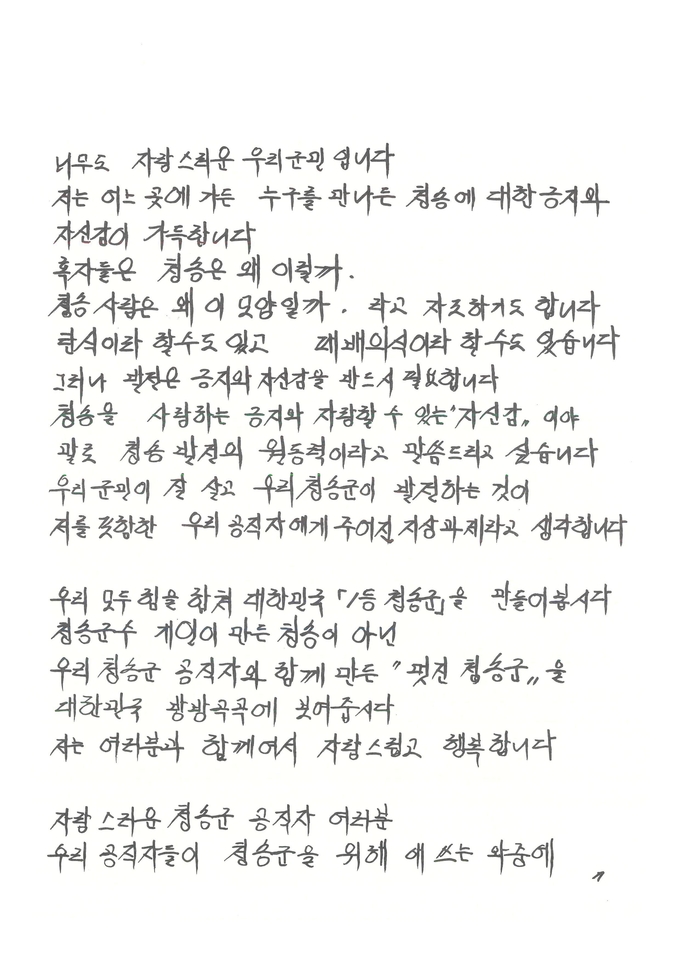 너무도 자랑스러운 우리군민 입니다
저는 어느 곳에 가든 누구를 만나든 청송에 대한 긍지와
자신감이 가득합니다
혹자들은 청송은 왜 이럴까.
청송 사람은 왜 이 모양일까. 라고 자조하기도 합니다
탄식이라 할수도 있고 패배의식이라 할 수도 있습니다
그러나 발전은 긍지와 자신감을 반드시 필요합니다
청송을 사랑하는 긍지와 자랑할 수 있는 "자신감„ 이야
말로 청송 발전의 원동력이라고 말씀드리고 싶습니다
우리 군민이 잘 살고 우리 청송군이 발전하는 것이
저를 포함한 우리 공직자에게 주어진 지상과제라고 생각합니다
우리 모두 힘을 합쳐 대한민국 「1등 청송군」을 만들어봅시다
청송군수 개인이 만든 청송이 아닌
우리 청송군 공직자와 함께 만든 "멋진 청송군„을
대한민국 방방곡곡에 보여줍시다
저는 여러분과 함께여서 자랑스럽고 행복합니다
자랑스러운 청송군 공직자 여러분
우리 공직자들이 청송군을 위해 애 쓰는 와중에
7